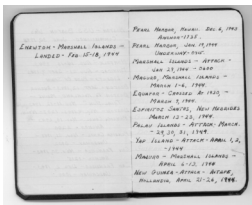 ENEWTOK - MARSHALL ISLANDS -
LANDED - FEB. 15-18, 1944
PEARL HARBOR, HAWAII DEC 6, 1943
ANCHOR - 1525.
PEARL HARBOR, JAN. 19, 1944
UNDERWAY -
MARSHALL ISLANDS - ATTACK -
JAN 29, 1944 -
MAJURO, MARSHALL ISLANDS -
MARCH 1-6, 1944.
EQUATOR - CROSSED AT 1930, -
MARCH 9, 1944.
ESPIRITOS SANTOS, NEW HEBRIDES
MARCH 12-23, 1944.
PALAU ISLANDS - ATTACK - MARCH.
- 29, 30, 31, 1944.
YAP ISLAND - ATTACK - APRIL 1, 2,
- 1944
MAJURO - MARSHALL ISLANDS -
APRIL 6-13, 1944
NEW GUINEA - ATTACK - AITAPE,
HOLLANDIA, APRIL 21-24, 1944.